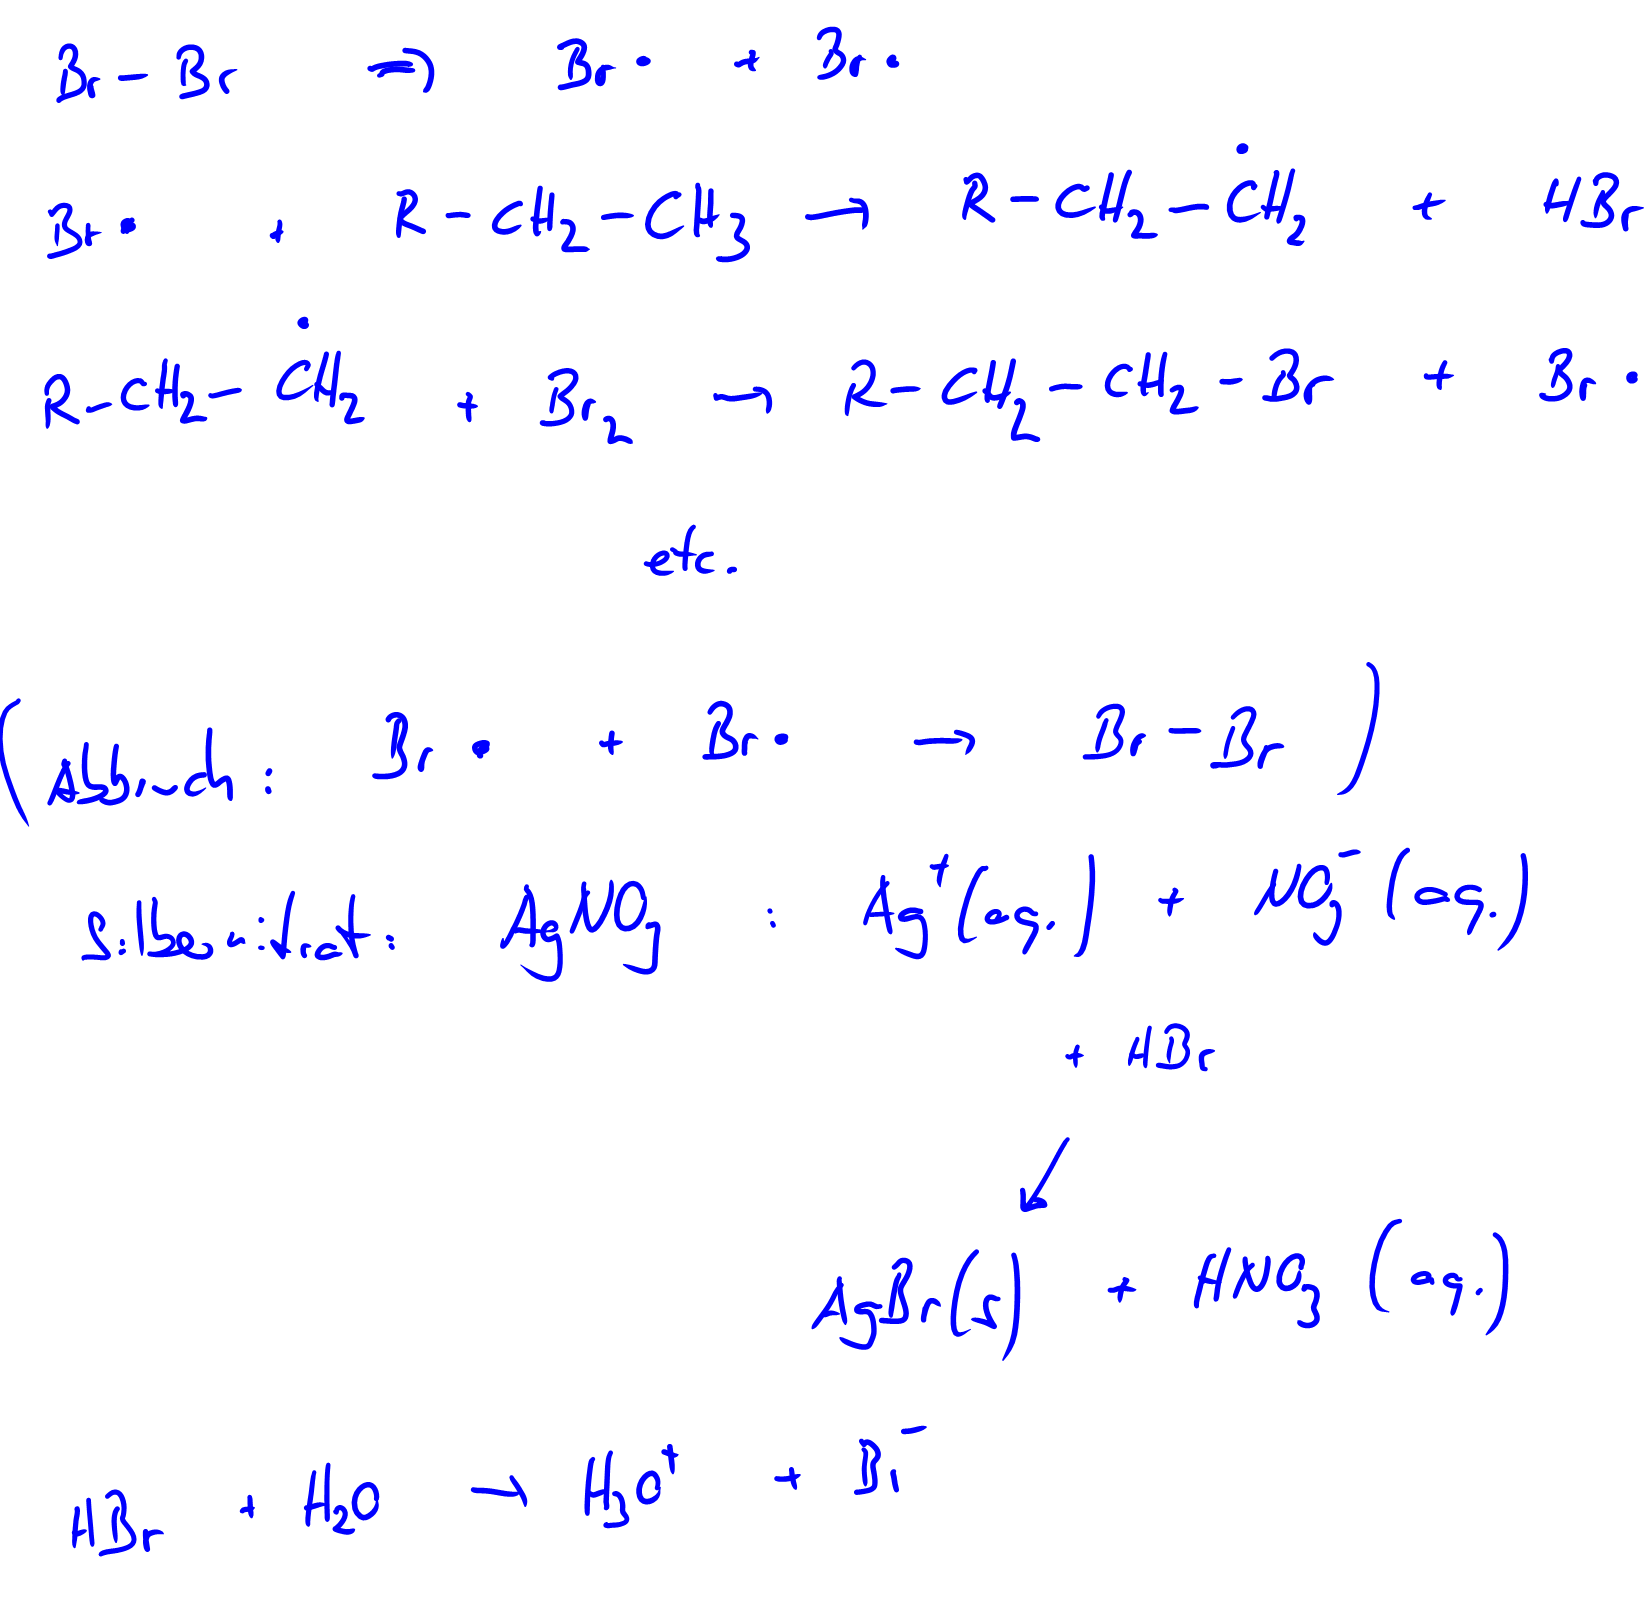 Br – Br ⇒ Br• + Br•
Br• + R – CH₂ – CH₃ → R – CH₂ – ĊH₂ + HBr
R – CH₂ – ĊH₂ + Br₂ → R – CH₂ – CH₂ – Br + Br•
etc.
(Abbruch: Br• + Br• → Br – Br)
Silbernitrat: AgNO₃ : Ag⁺(aq.) + NO₃⁻(aq.)
+ HBr
↙
AgBr(s) + HNO₃ (aq.)
HBr + H₂O → H₃O⁺ + Br⁻